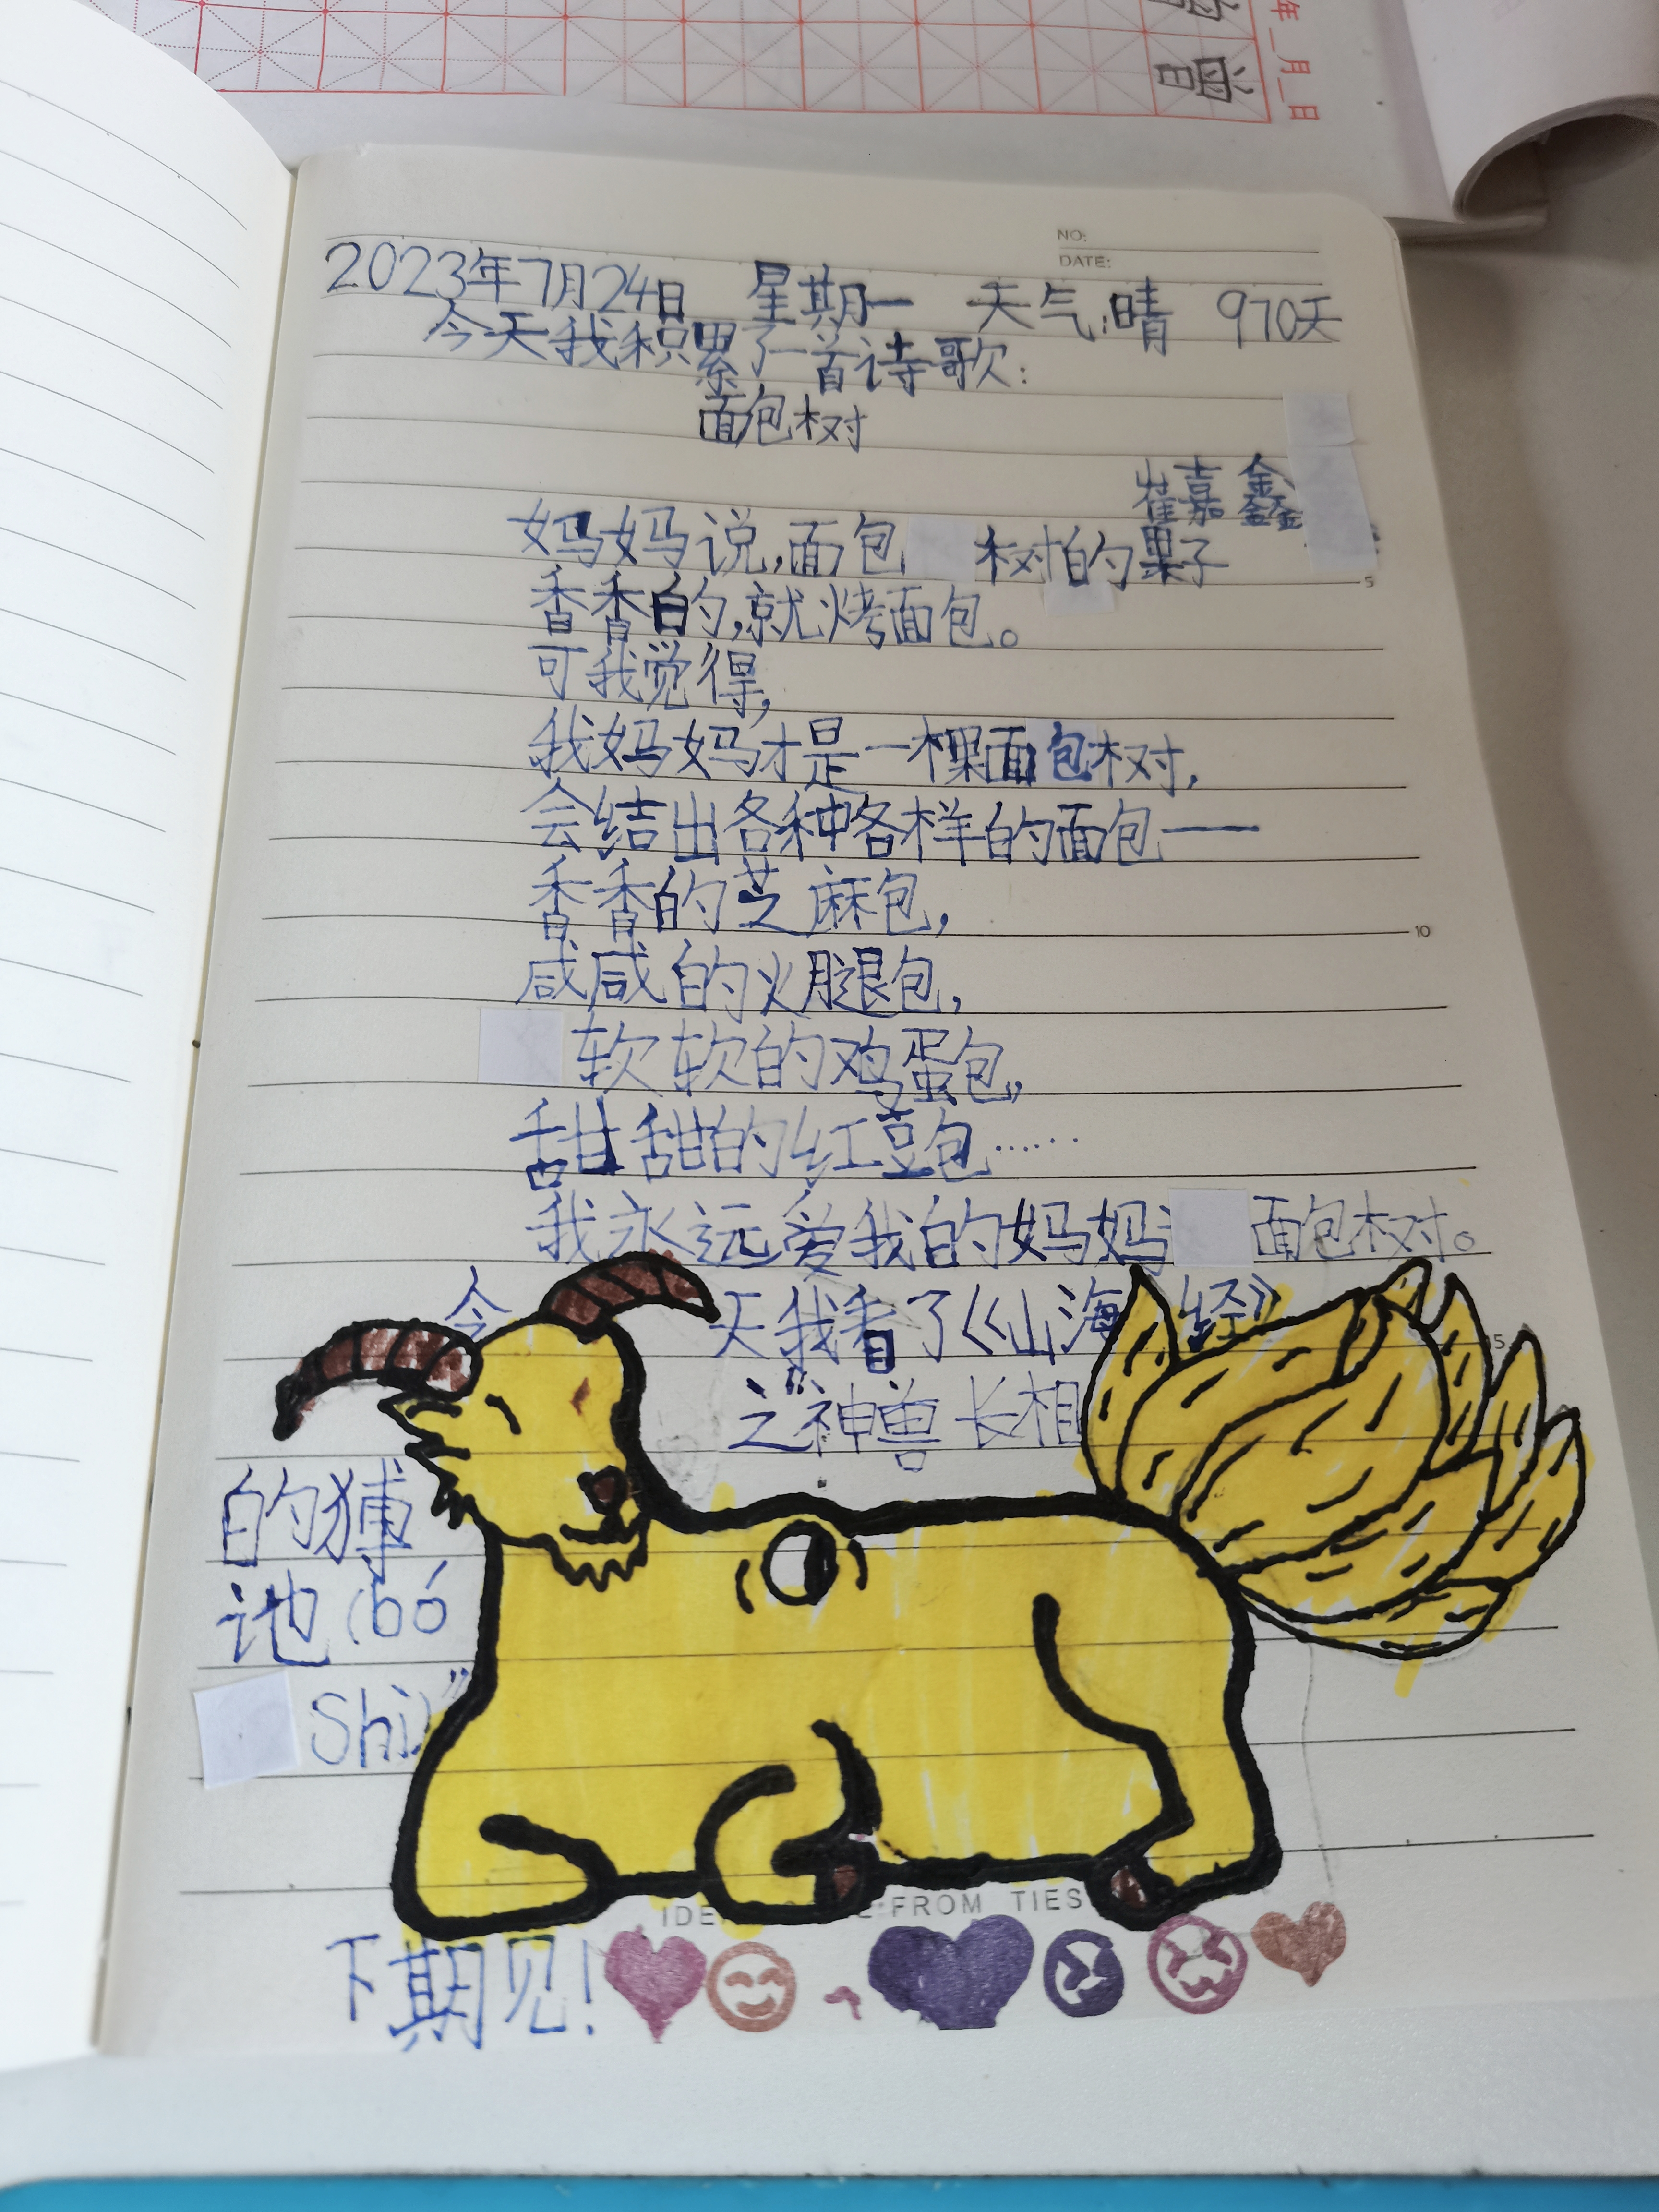 年_月_日
NO:
DATE:
2023年7月24日 星期一 天气:晴 970天
今天我积累了一首诗歌:
面包树
崔嘉鑫
妈妈说,面包树的果子
香香的,就烤面包。
可我觉得,
我妈妈才是一棵面包树,
会结出各种各样的面包——
香香的芝麻包,
咸咸的火腿包,
软软的鸡蛋包,
甜甜的红豆包……
我永远爱我的妈妈 面包树。
今天我看了《山海经》
之神兽长相
的猼
訑(bó
Shi)”
5
10
15
FROM TIES
下期见!